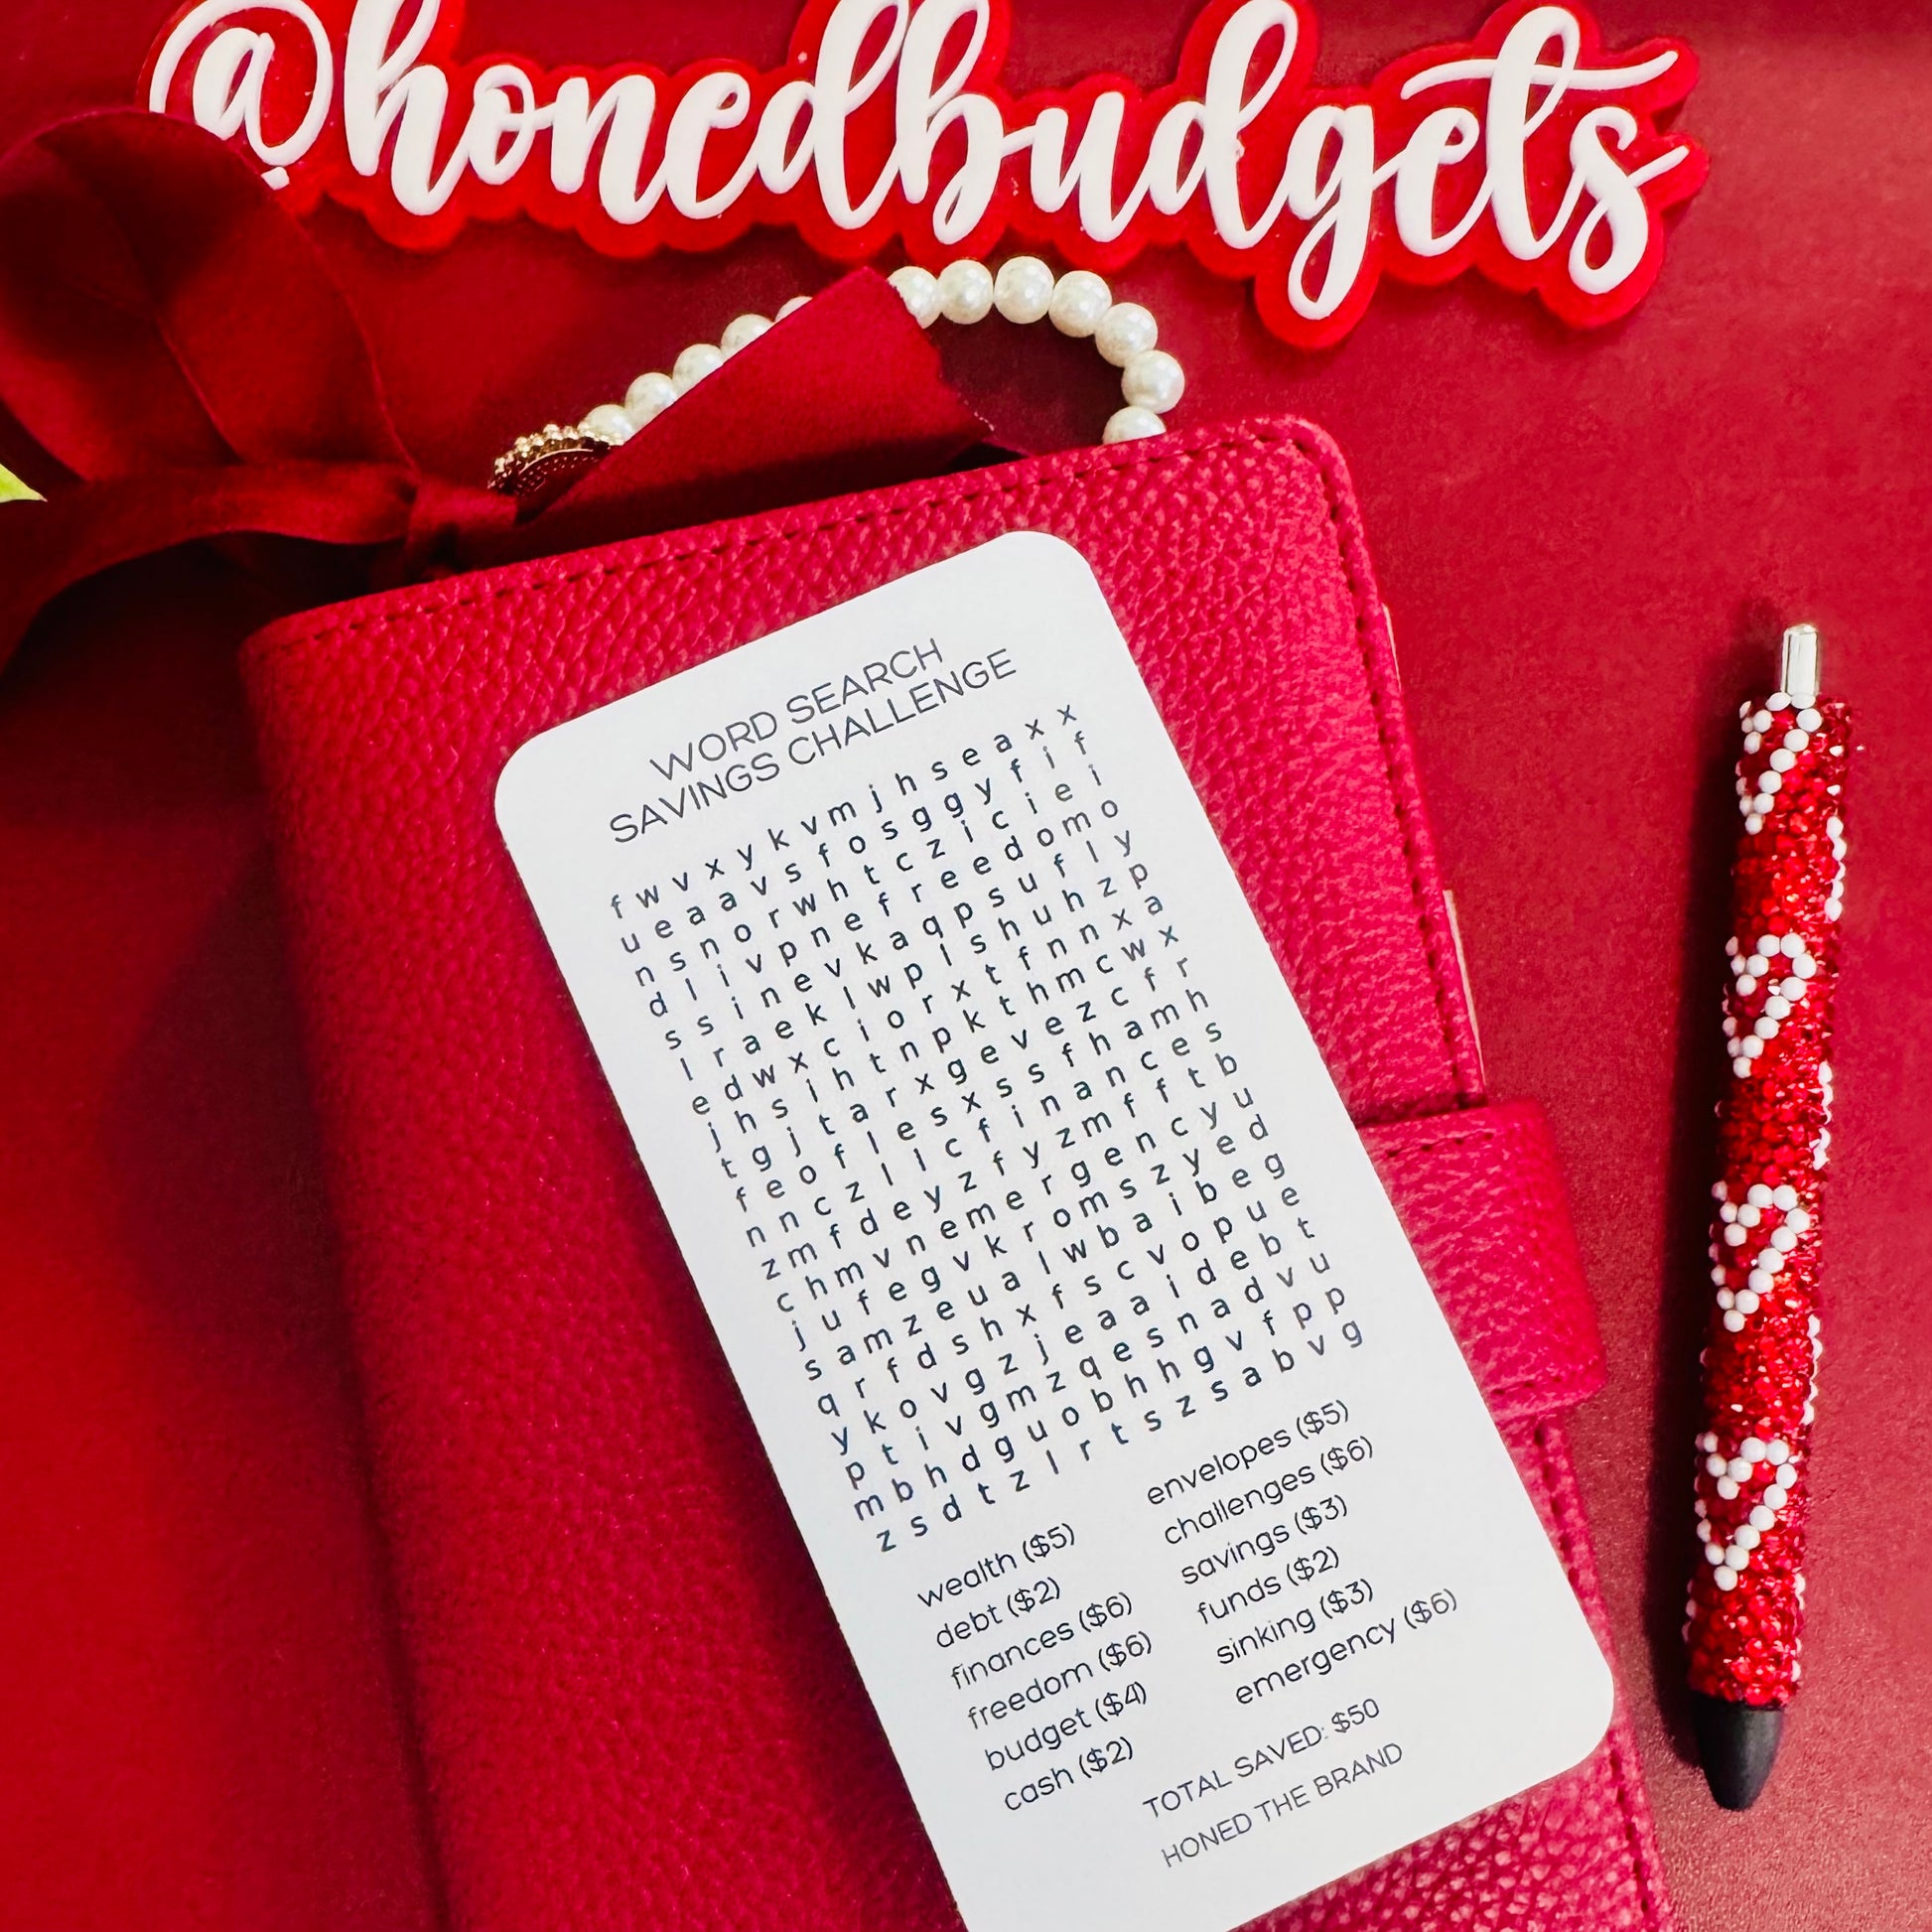 @honedbudgets
WORD SEARCH
SAVINGS CHALLENGE
f w v x y k v m j h s e a x x
u e a a v s f o s g g y f i f
n s n o r w h t c z i c i e i
d l i v p n e f r e e d o m o
s s i n e v k a q p s u f l y
l r a e k l w p l s h u h z p
e d w x c i o r x t f n n x a
j h s i h t n p k t h m c w x
t g j t a r x g e v e z c f r
f e o f l e s x s s f h a m h
n n c z l l c f i n a n c e s
z m f d e y z f y z m f f t b
c h m v n e m e r g e n c y u
j u f e g v k r o m s z y e d
s a m z e u a l w b a i b e g
q r f d s h x f s c v o p u e
y k o v g z j e a a i d e b t
p t i v g m z q e s n a d v u
m b h d g u o b h h g v f p p
z s d t z l r t s z s a b v g
wealth ($5)
debt ($2)
finances ($6)
freedom ($6)
budget ($4)
cash ($2)
envelopes ($5)
challenges ($6)
savings ($3)
funds ($2)
sinking ($3)
emergency ($6)
TOTAL SAVED: $50
HONED THE BRAND